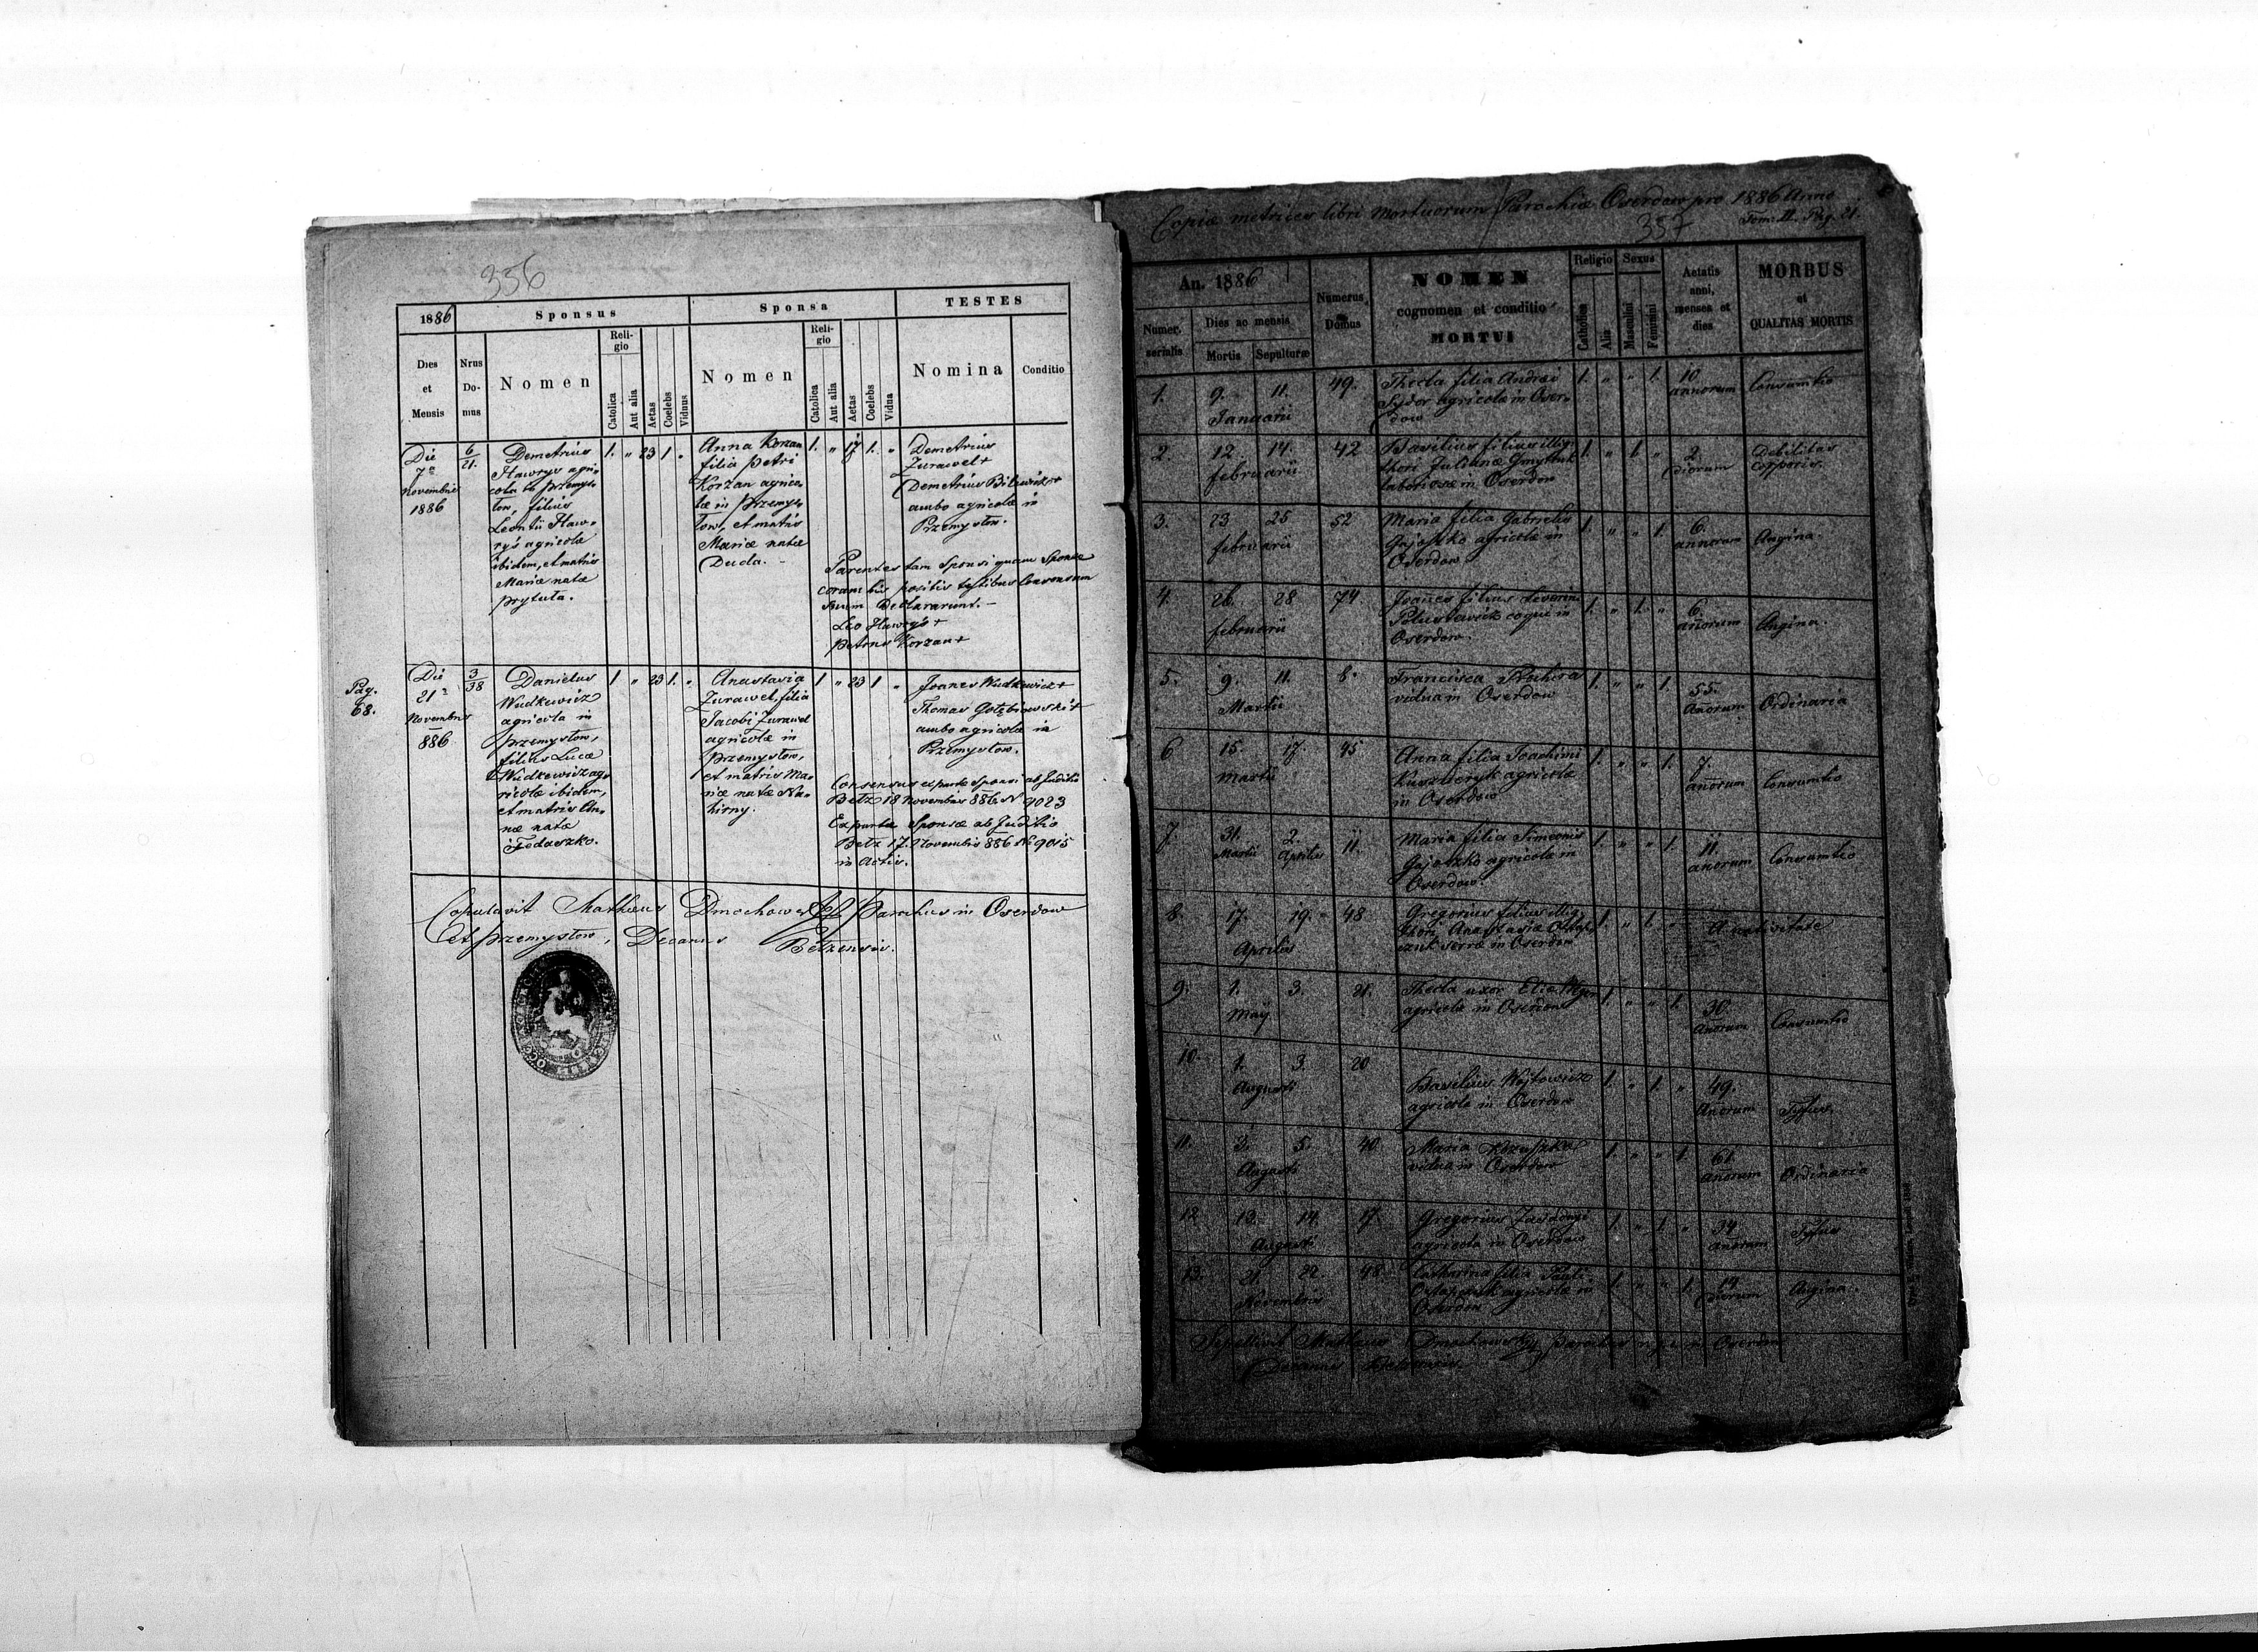 356
1886
Sponsus
Sponsa
TESTES
Dies et Mensis
Nrus Domus
Nomen
Religio
Catolica
Aut alia
Aetas
Coelebs
Viduus
Nomen
Religio
Catolica
Aut alia
Aetas
Coelebs
Vidua
Nomina
Conditio
Die
7a
Novembris
1886
6/21.
Demetrius
Hawrys agri-
cola in Przemys-
low, filius
Leontii Haw-
ryś agricolæ
ibidem, et matris
Mariæ natæ
Prytuła.
1. „ 23 1 „
Anna Korzan
filia Petri
Korzan agrico-
læ in Przemy-
low, et matris
Mariæ natæ
Duda. -
1. „ 17 1. „
Demetrius
Zurawel +
ambo agricolæ in
Przemysłow.
Parentes tam Sponsi quam Sponsæ
coram his positis testibus Consensum
suum Declararunt. -
Leo Hawryś +
Petrus Korzan +
Pag.
68.
Die
21a
Novembris
886
3/38
Danielus
Wudkewicz
agricola in
Przemysłow,
filius Lucæ
Wudkewicz ag-
ricolæ ibidem,
et matris An-
næ natæ
Fedaszko.
1 „ 23 1. „
Anastasia
Zurawel, filia
Jacobi Zurawel
agricolæ in
Przemysłow,
et matris Ma-
riæ natæ Na-
hirny.
1 „ 23 1 „
Joanes Wudkewicz +
Thomas Gołębiowski +
ambo agricolæ in
Przemysłow.
Consensus ex parte Sponsi ab Juditio
Bełz 18 Novembris 886 N 9023
Ex parte Sponsæ ab Juditio
Bełz 17. Novembris 886 N 9015
in Actis.
Copulavit Mathæus Dmochowski Parochus in Oserdow
et Przemysłow, Decanus Bełzensis.
Copia metrices libri Mortuorum Parochiæ Oserdow pro 1886 Anno
357
Tom: II. Pag. 21.
An. 1886
Numer. serialis
Dies ac mensis
Mortis
Sepulturæ
Numerus Domus
NOMEN
cognomen et conditio
MORTUI
Religio
Catholica
Alia
Sexus
Masculini
Feminini
Aetatis
anni,
menses et
dies
MORBUS
et
QUALITAS MORTIS
1. 9. 11. Januarii 49.
Thecla filia Andrei
Sydor agricolæ in Oser-
dow
1. „ „ 1. 10 annorum Consumtio
2. 12. 14. februarii 42
Basilius filius illigi-
thori Julianæ
in Oserdow
1. „ 1. „ 2 dierum Debilitas
corporis.
3. 23 25 februarii 52
Maria filia Gabrielis
Gajoszko agricolæ in
Oserdow
1. „ „ 1. 6. annorum Angina.
4. 26. 28 februarii 74
Joanes filius Severini
coqui in
Oserdow.
1. „ 1. „ 6. anorum Angina.
5. 9. 11. Martii 8.
Francisca
vidua in Oserdow
1. „ „ 1. 55. Anorum Ordinaria
6 15. 17. Martii 45
Anna filia Joachimi
agricolæ
in Oserdow
1. „ „ 1. 7. anorum Consumtio
7. 31. Martii 2. Aprilis 11.
Maria filia Simeonis
Gajoszko agricolæ in
Oserdow.
1. „ „ 1. 11. anorum Consumtio
8. 17. 19. Aprilis 48.
Gregorius filius illigi-
thori Anastasiæ Ostap-
czuk servæ in Oserdow
1. „ 1. „ A nativitate
9. 1. 3. May 21.
Thecla uxor Eliæ
agricolæ in Oserdow
1. „ „ 1. 30. Anorum Consumtio
10. 1. 3. Augusti 20
Basilius Wojtowicz
agricola in Oserdow
1. „ 1. „ 49. Anorum Tyfus.
11. 3. 5. Augusti 40
Maria
vidua in Oserdow
1. „ „ 1. 61. Anorum Ordinaria
12 13. 14. Augusti 17.
Gregorius
agricola in Oserdow
1. „ 1. „ 34. anorum Tyfus
13. 21. 22. Novembris 48
Catharina filia Pauli
Ostapczuk agricolæ in
Oserdow
1. „ „ 1. 14. dierum Angina.
Sepelivit Mathæus Dmochowski Parochus in Oserdow
Decanus Bełzensis